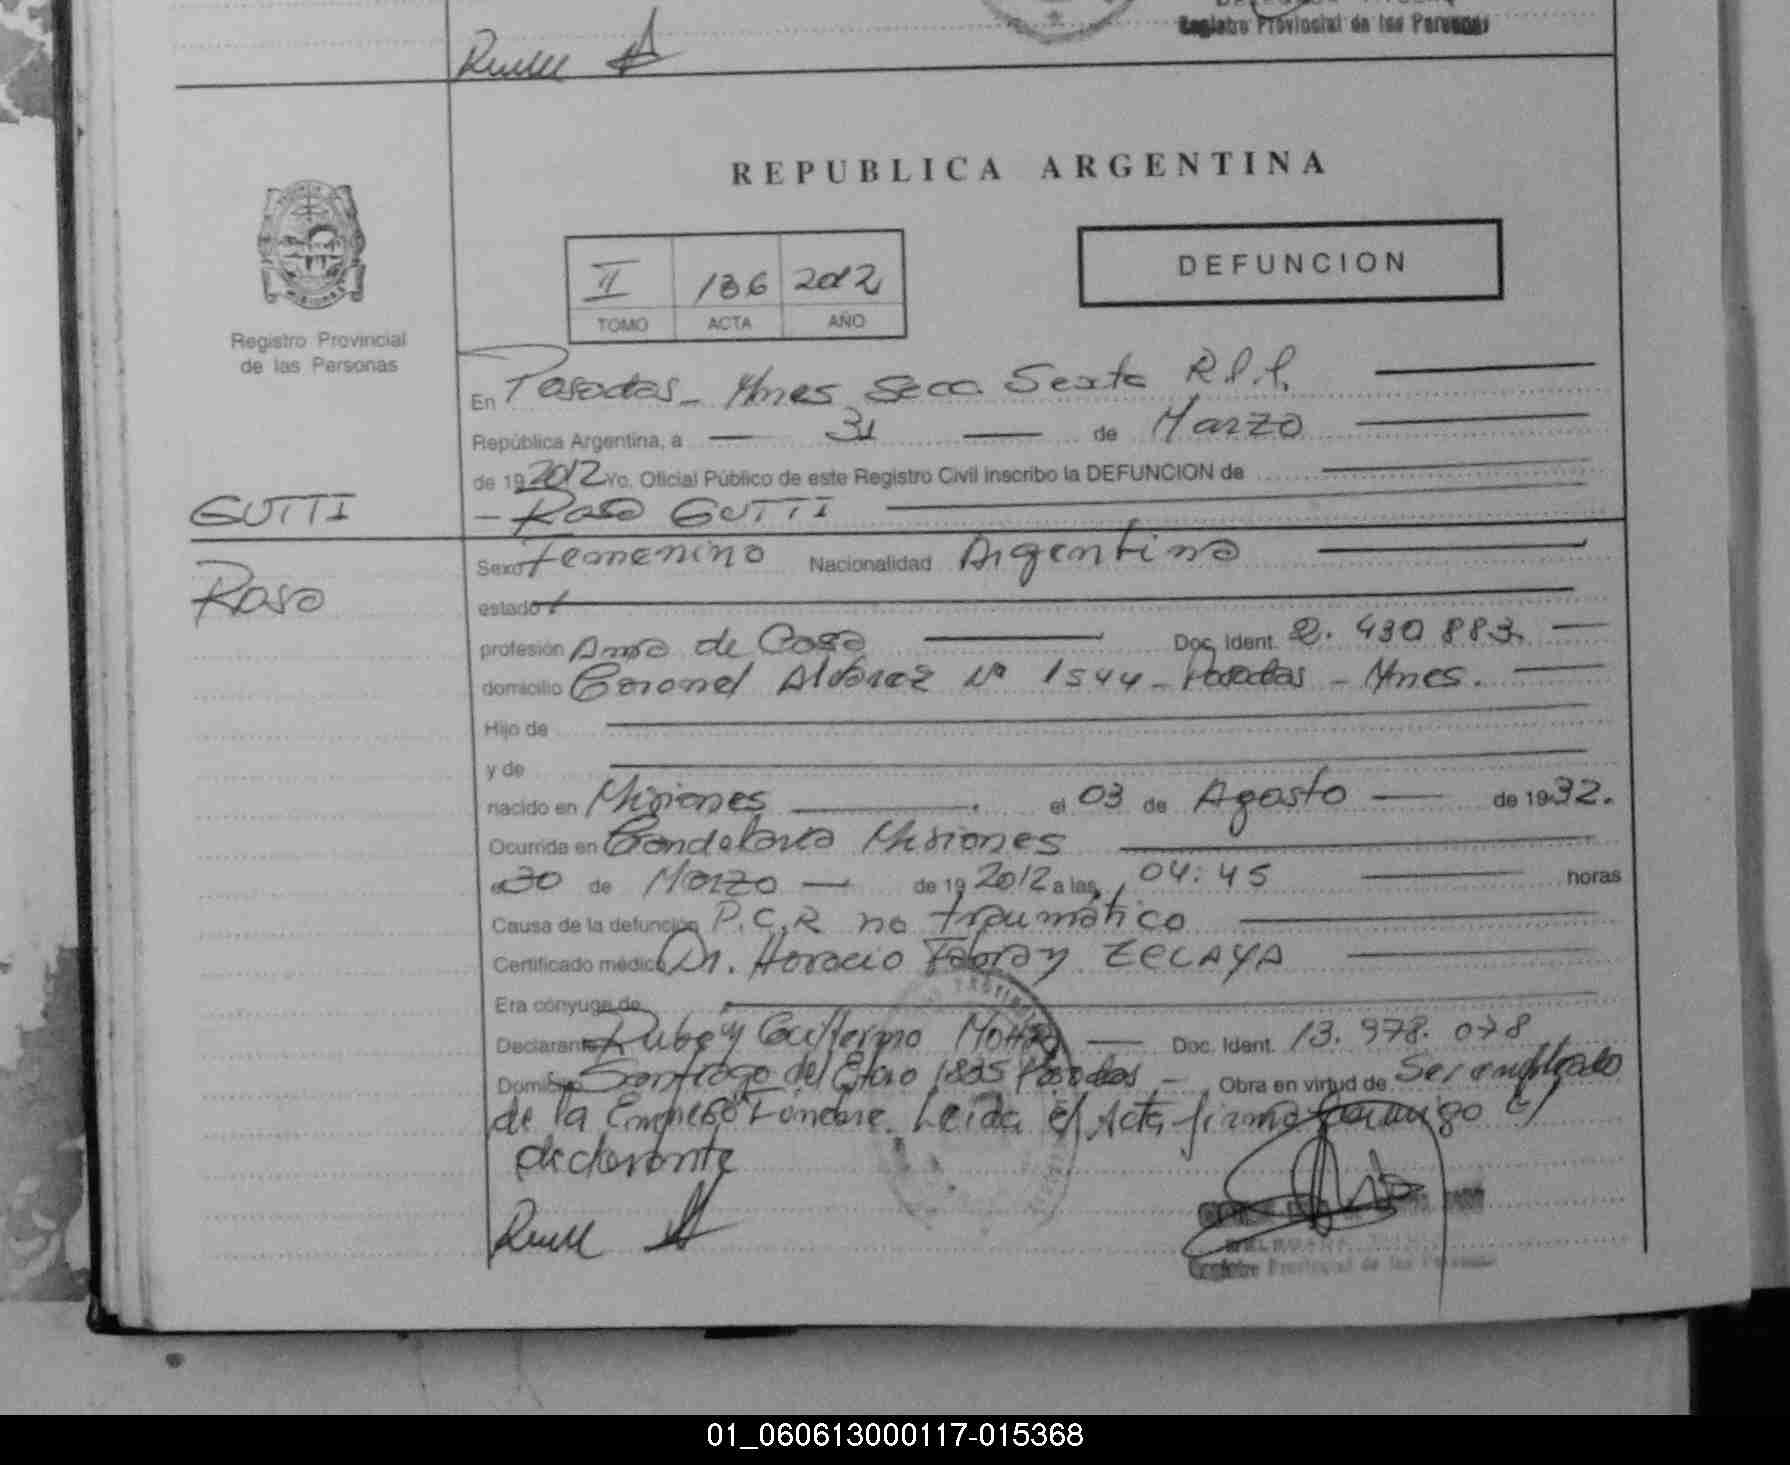 Registro Provincial de las Personas
REPUBLICA ARGENTINA
II 136 2012
TOMO ACTA AÑO
DEFUNCION
Registro Provincial
de las Personas
GUTTI
Rosa
En Posadas - Mnes Secc. Sexta R.P.P.
República Argentina, a 31 de Marzo
de 19 2012 Yo, Oficial Público de este Registro Civil inscribo la DEFUNCION de
- Rosa GUTTI
Sexo Femenino Nacionalidad Argentina
estado
profesión Ama de Casa Doc. Ident. 2.430.883.
domicilio Coronel Alvarez Nº 1544 - Posadas - Mnes.
Hijo de
y de
nacido en Misiones. el 03 de Agosto de 19 32.
Ocurrida en Candelaria Misiones
el 30 de Marzo de 19 2012 a las 04:45 horas
Causa de la defunción P.C.R no traumático
Certificado médico Dr. Horacio Fabian ZELAYA
Era cónyuge de
Declarante Guillermo Doc. Ident. 13.978.078
Domicilio Santiago del Estero 1835 Posadas - Obra en virtud de Ser empleado
de la Empresa Fúnebre. Leida el Acta firma conmigo el
declarante
Registro Provincial de las Personas
01_060613000117-015368